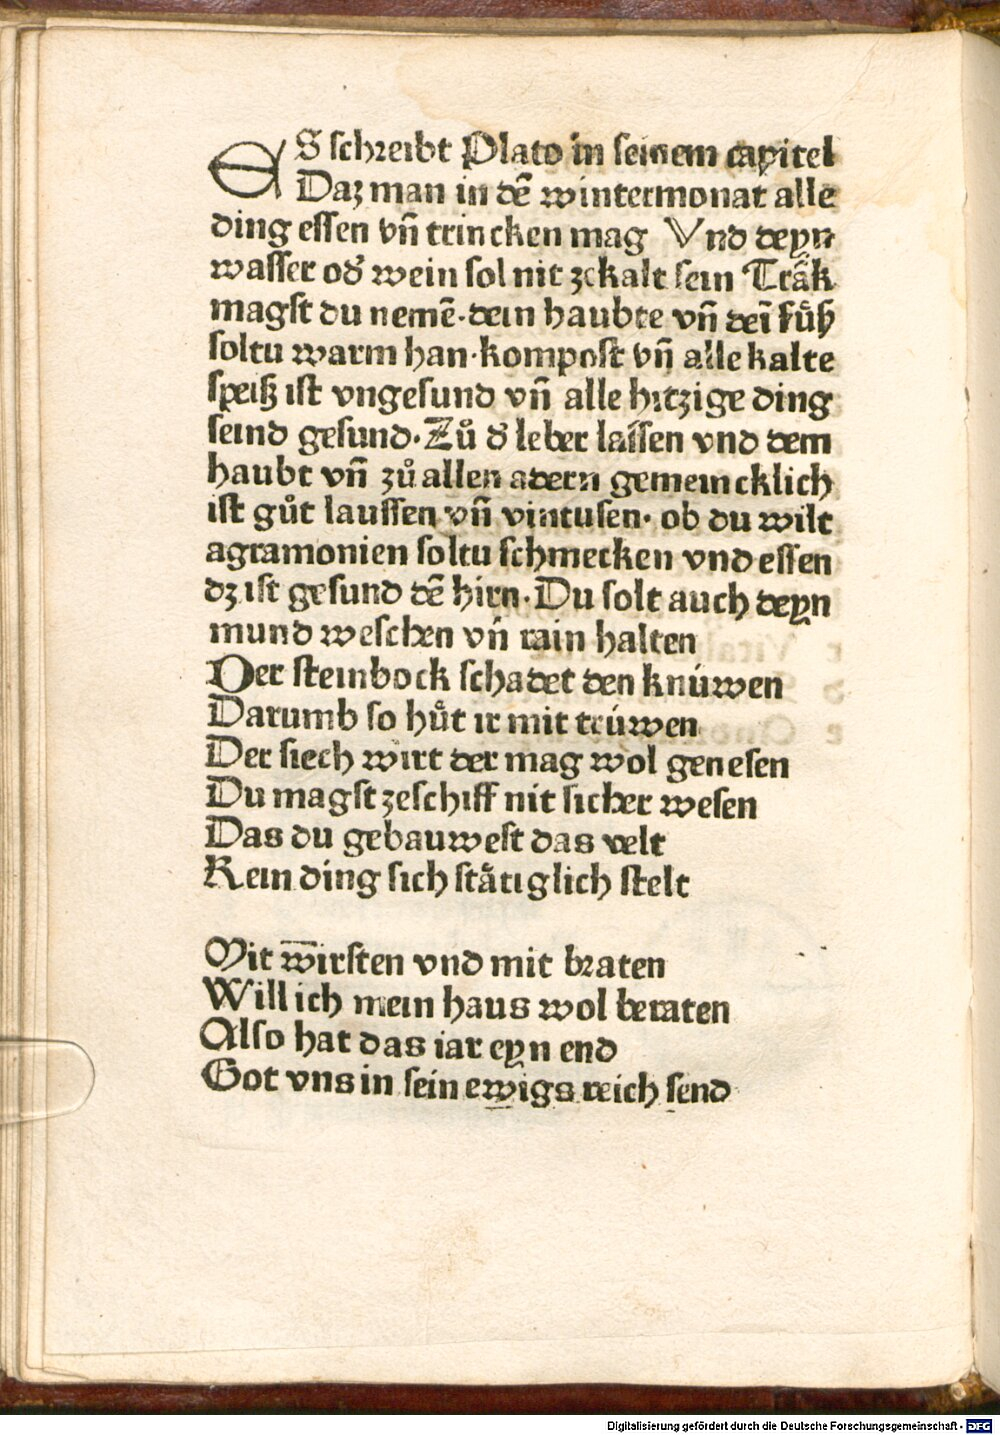 ES schreibt Plato in seinem capitel
Daz man in dē wintermonat alle
ding essen vn̄ trincken mag Vnd deyn
wasser od̕ wein sol nit zekalt sein Trāk
magst du nemē·dein haubte vn̄ deī fuͤß
soltu warm han·kompost vn̄ alle kalte
speiß ist vngesund vn̄ alle hitzige ding
seind gesund·Zů d̕ leber lassen vnd dem
haubt vn̄ zů allen adern gemeincklich
ist gůt laussen vn̄ vintusen· ob du wilt
agramonien soltu schmecken vnd essen
dz ist gesund dē hirn·Du solt auch deyn
mund weschen vn̄ rain halten
Der steinbock schadet den knúwen
Darumb so huͤt ir mit trúwen
Der siech wirt der mag wol genesen
Du magst zeschiff nit sicher wesen
Das du gebauwest das velt
Kein ding sich staͤtiglich stelt
Mit wirsten vnd mit braten
Will ich mein haus wol beraten
Also hat das iar eyn end
Got vns in sein ewigs reich send
Digitalisierung gefördert durch die Deutsche Forschungsgemeinschaft - DFG